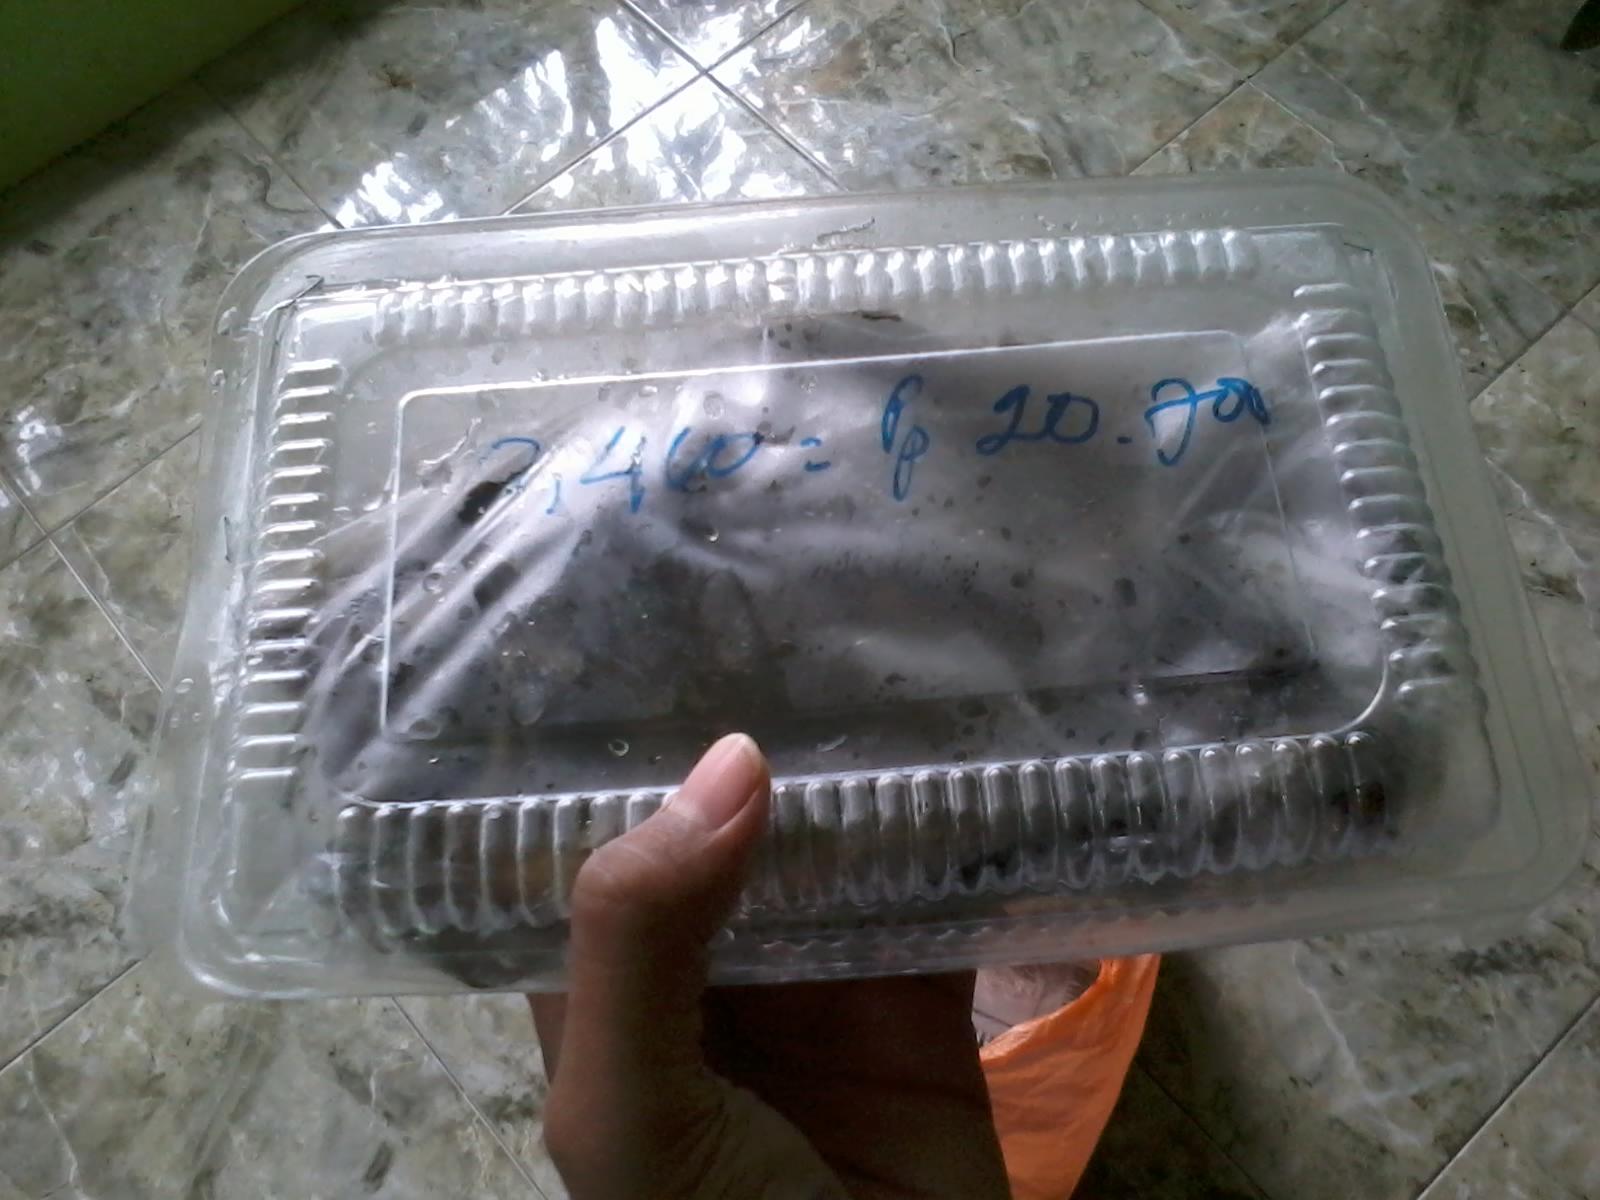 2,460 = Rp 20.700